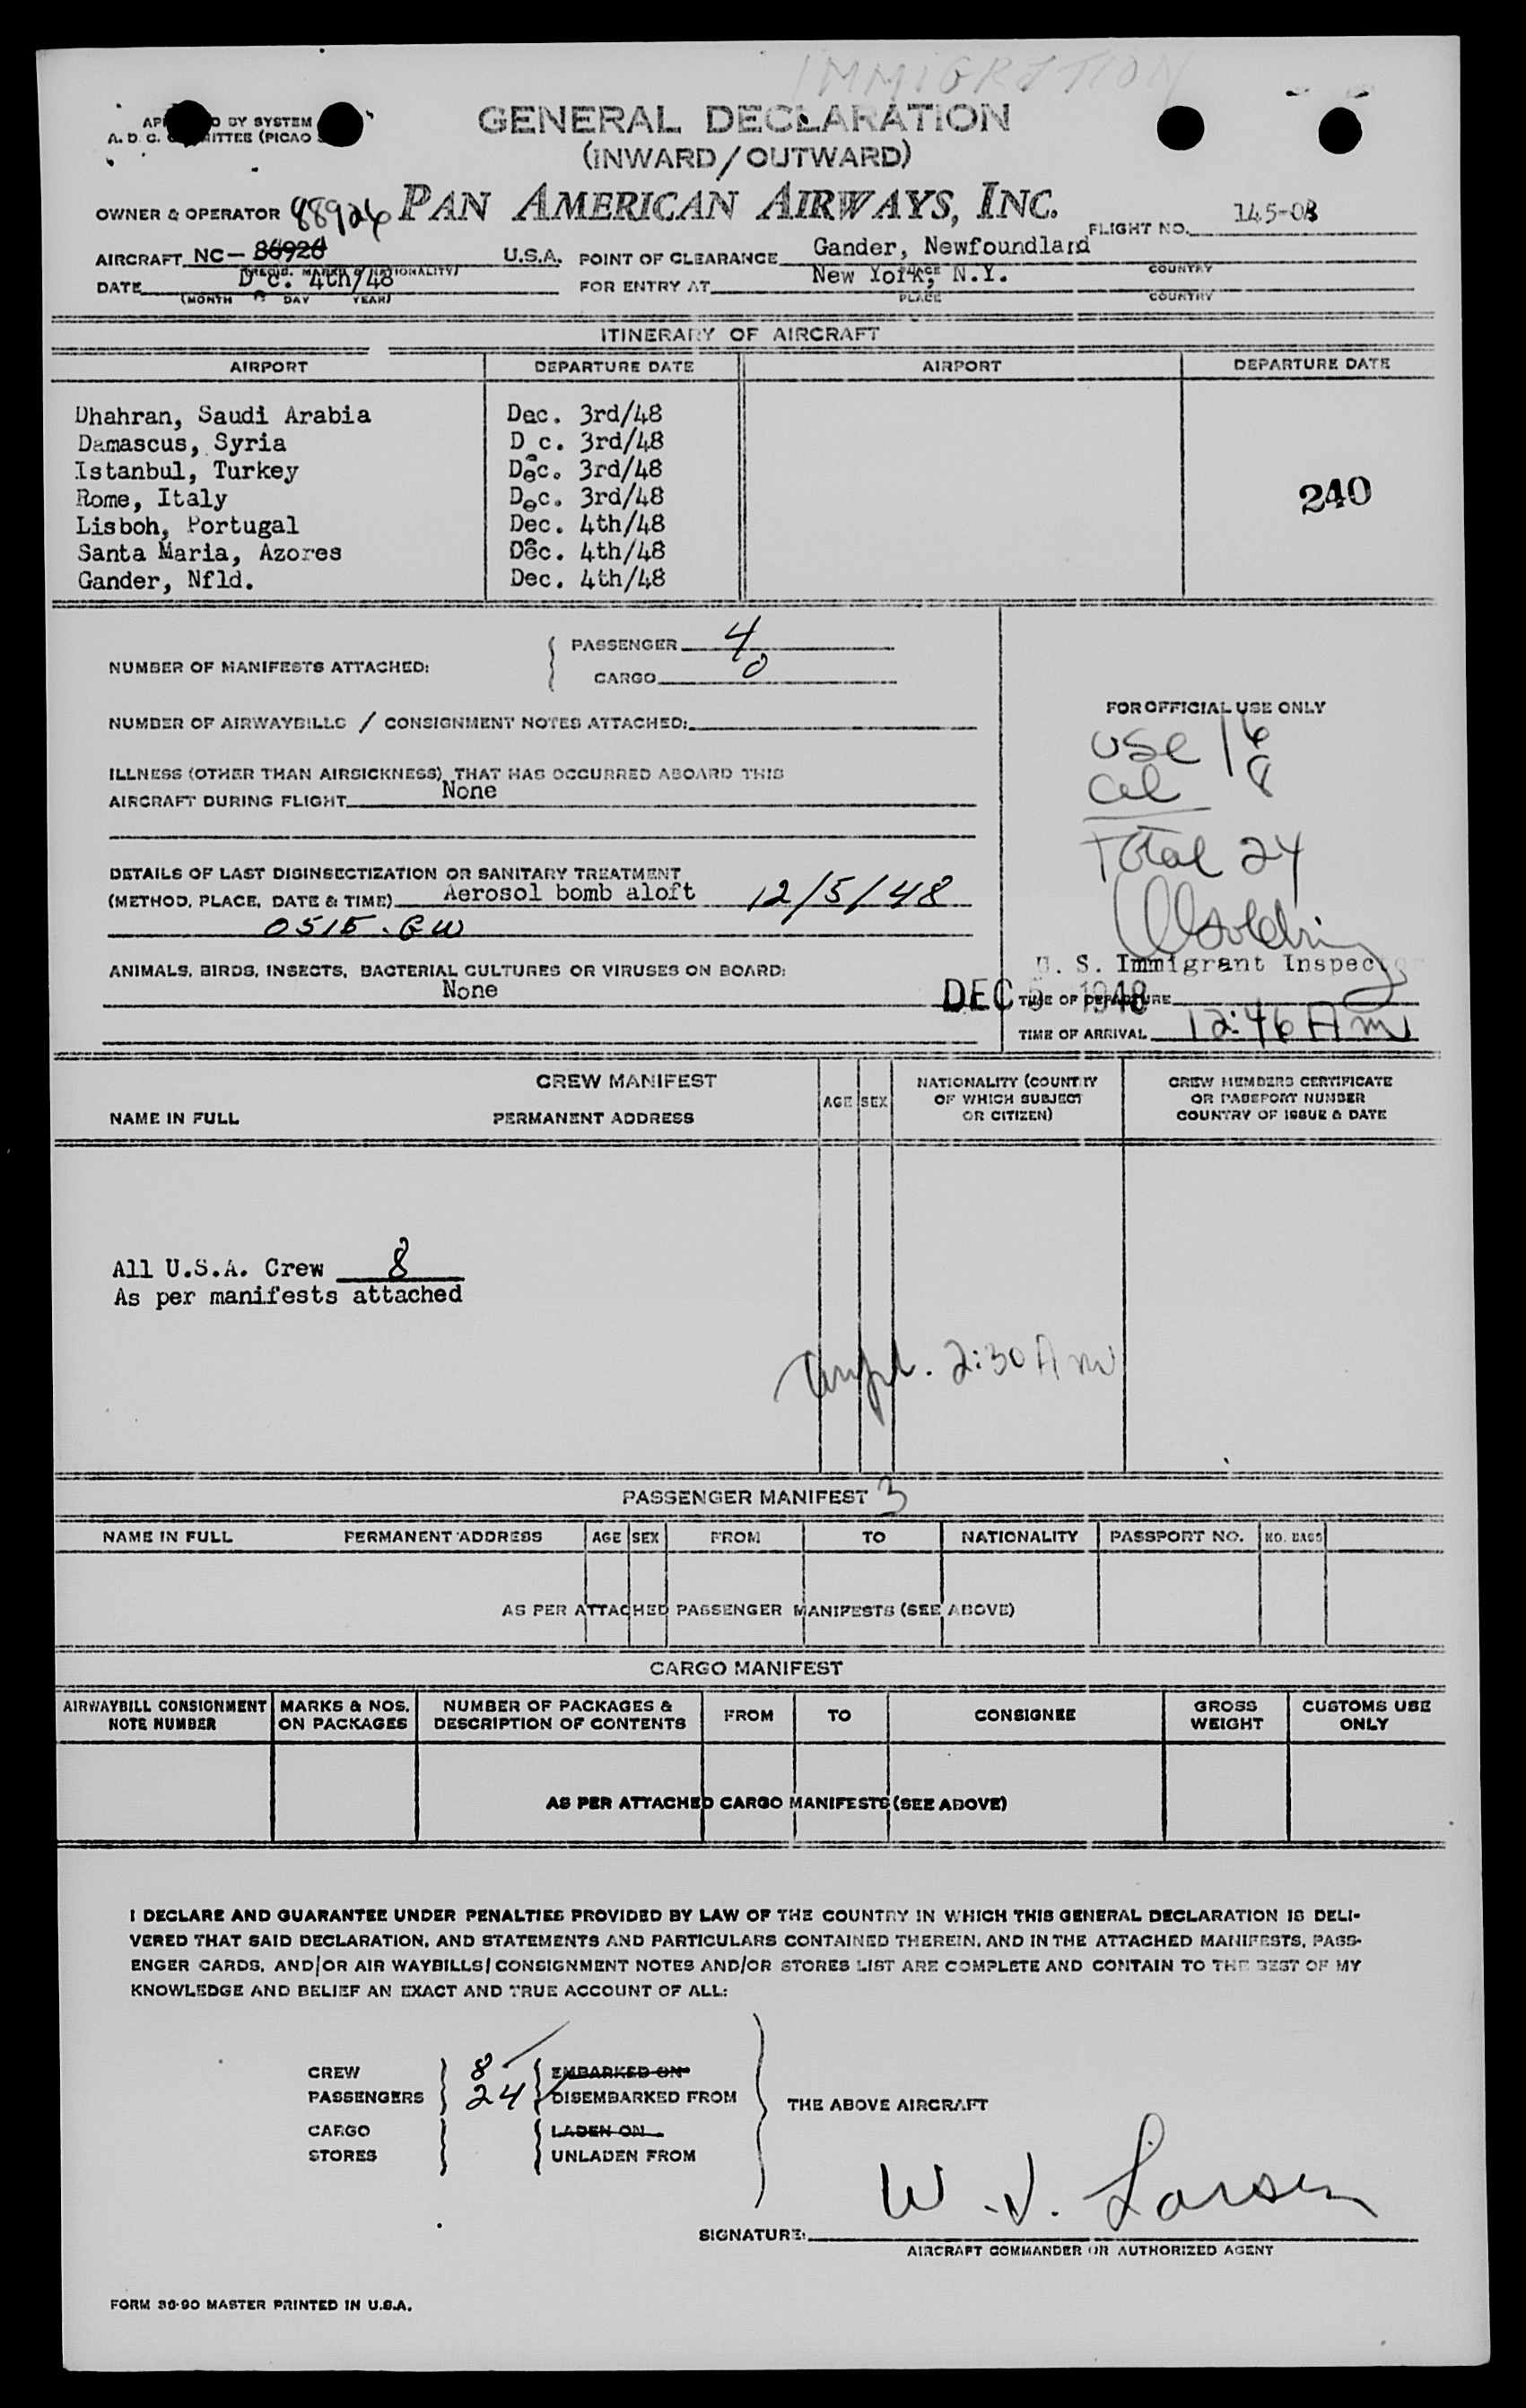 IMMIGRATION
BY SYSTEM
A. D. C. (PICAO
GENERAL DECLARATION
(INWARD/OUTWARD)
OWNER & OPERATOR 88926 PAN AMERICAN AIRWAYS, INC. FLIGHT NO. 145-03
AIRCRAFT NC- 86926 U.S.A. POINT OF CLEARANCE Gander, Newfoundland
(REGIS. MARKS & NATIONALITY) PLACE COUNTRY
DATE Dec. 4th/48 FOR ENTRY AT New York, N.Y.
(MONTH DAY YEAR) PLACE COUNTRY
ITINERARY OF AIRCRAFT
AIRPORT DEPARTURE DATE AIRPORT DEPARTURE DATE
Dhahran, Saudi Arabia Dec. 3rd/48
Damascus, Syria Dec. 3rd/48
Istanbul, Turkey Dec. 3rd/48
Rome, Italy Dec. 3rd/48
240
Lisboh, Portugal Dec. 4th/48
Santa Maria, Azores Dec. 4th/48
Gander, Nfld. Dec. 4th/48
NUMBER OF MANIFESTS ATTACHED: PASSENGER 4
CARGO 0
NUMBER OF AIRWAYBILLS / CONSIGNMENT NOTES ATTACHED:
FOR OFFICIAL USE ONLY
USC 16
al 8
Total 24
ILLNESS (OTHER THAN AIRSICKNESS) THAT HAS OCCURRED ABOARD THIS
AIRCRAFT DURING FLIGHT None
DETAILS OF LAST DISINSECTIZATION OR SANITARY TREATMENT
(METHOD, PLACE, DATE & TIME) Aerosol bomb aloft 12/5/48
0515 . GW
U. S. Immigrant Inspector
ANIMALS, BIRDS, INSECTS, BACTERIAL CULTURES OR VIRUSES ON BOARD:
None
DEC 5 1948
TIME OF DEPARTURE
TIME OF ARRIVAL 12:46 AM
CREW MANIFEST
NAME IN FULL PERMANENT ADDRESS AGE SEX NATIONALITY (COUNTRY OF WHICH SUBJECT OR CITIZEN) CREW MEMBERS CERTIFICATE OR PASSPORT NUMBER COUNTRY OF ISSUE & DATE
All U.S.A. Crew 8
As per manifests attached
2:30 AM
PASSENGER MANIFEST 3
NAME IN FULL PERMANENT ADDRESS AGE SEX FROM TO NATIONALITY PASSPORT NO. NO. BAGS
AS PER ATTACHED PASSENGER MANIFESTS (SEE ABOVE)
CARGO MANIFEST
AIRWAYBILL CONSIGNMENT NOTE NUMBER MARKS & NOS. ON PACKAGES NUMBER OF PACKAGES & DESCRIPTION OF CONTENTS FROM TO CONSIGNEE GROSS WEIGHT CUSTOMS USE ONLY
AS PER ATTACHED CARGO MANIFESTS (SEE ABOVE)
I DECLARE AND GUARANTEE UNDER PENALTIES PROVIDED BY LAW OF THE COUNTRY IN WHICH THIS GENERAL DECLARATION IS DELI-
VERED THAT SAID DECLARATION, AND STATEMENTS AND PARTICULARS CONTAINED THEREIN, AND IN THE ATTACHED MANIFESTS, PASS-
ENGER CARDS, AND/OR AIR WAYBILLS/CONSIGNMENT NOTES AND/OR STORES LIST ARE COMPLETE AND CONTAIN TO THE BEST OF MY
KNOWLEDGE AND BELIEF AN EXACT AND TRUE ACCOUNT OF ALL:
CREW 8 EMBARKED ON
PASSENGERS 24 DISEMBARKED FROM
THE ABOVE AIRCRAFT
CARGO LADEN ON
STORES UNLADEN FROM
SIGNATURE: W. J. Larsen
AIRCRAFT COMMANDER OR AUTHORIZED AGENT
FORM 36-90 MASTER PRINTED IN U.S.A.